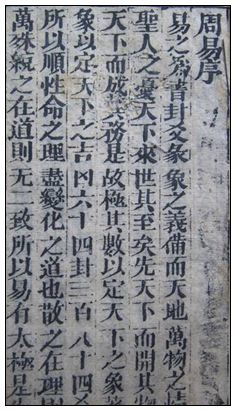 周易序
易之為書卦爻彖象之義備而天地萬物之情
聖人之憂天下來世其至矣先天下而開其物
天下而成其務是故極其數以定天下之象著
象以定天下之吉凶六十四卦三百八十四爻
所以順性命之理盡變化之道也散之在理則
萬殊統之在道則无二致所以易有太極是生